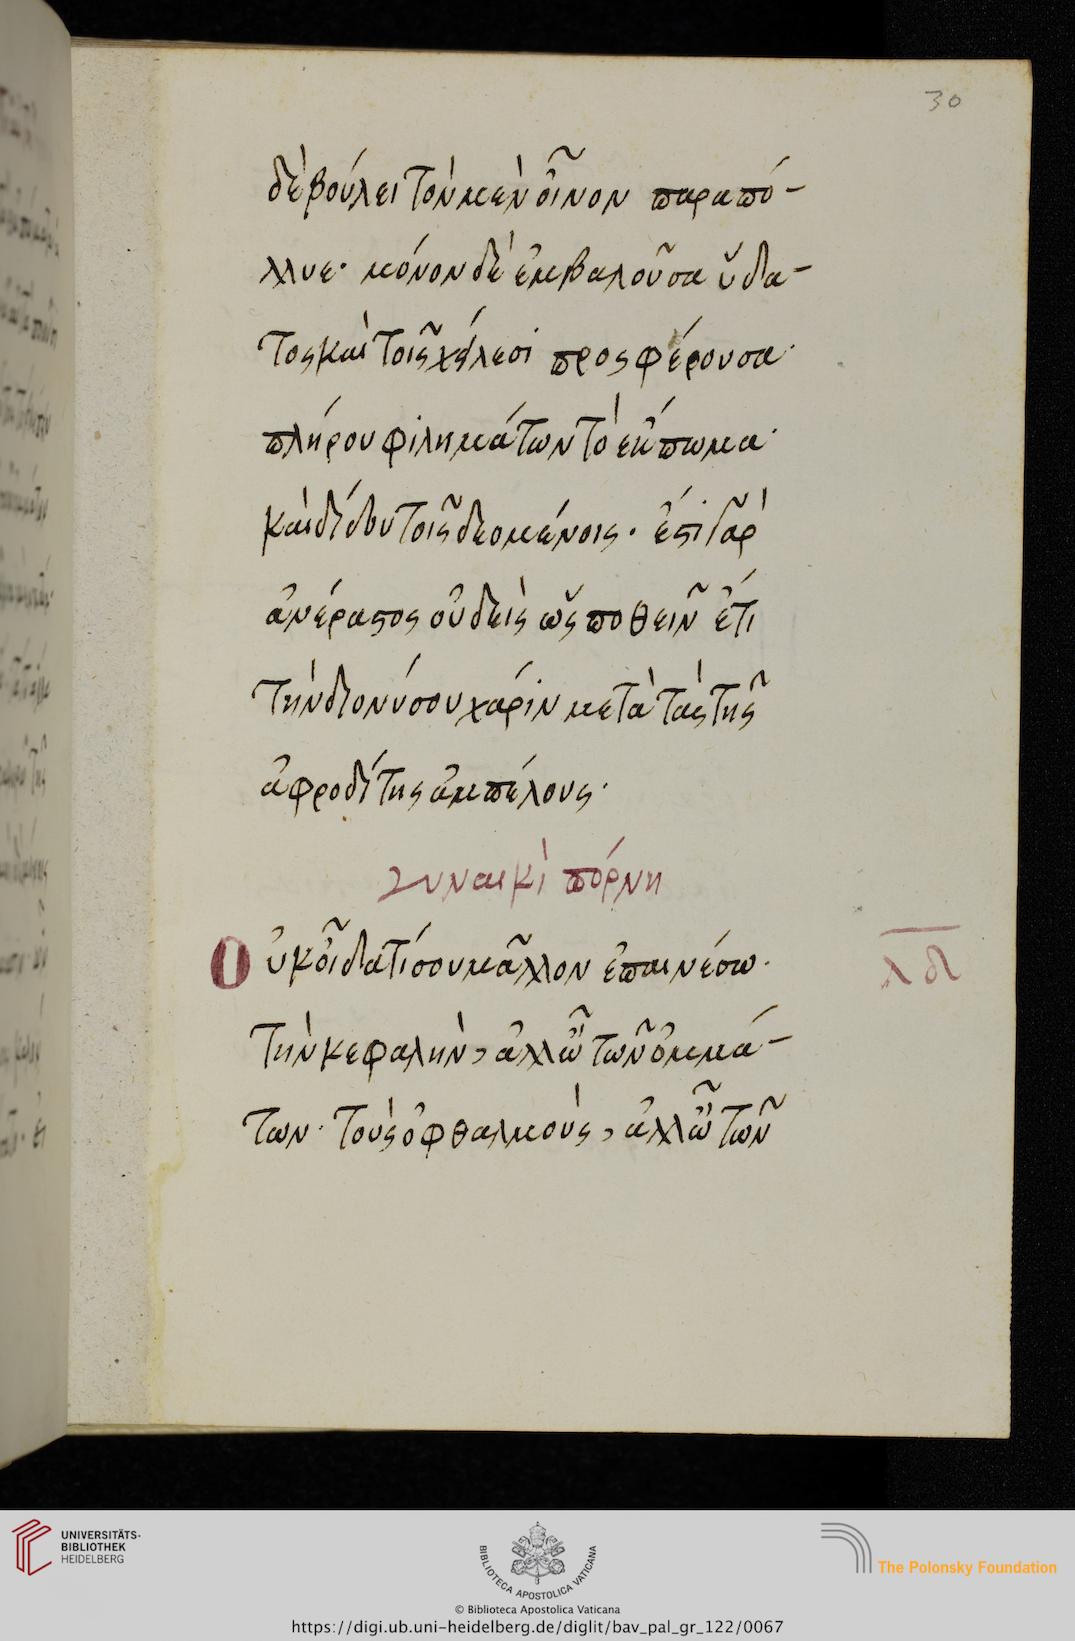 30
δὲ βούλει τὸν μὲν οἶνον παραπό-
λλυε· μόνον δὲ ἐμβαλοῦσα ὕδα-
τος καὶ τοῖς χείλεσι προσφέρουσα·
πλήρου φιλημάτων τὸ ἔκπωμα·
καὶ δίδου τοῖς δεομένοις· ἔστι γὰρ
ἀνέραστος οὐδεὶς ὡς ποθεῖν ἔτι
τὴν διονύσου χάριν μετὰ τὰς τῆς
ἀφροδίτης ἀμπέλους·
γυναικὶ πόρνη
Οὐκ οἶδα τί σου μᾶλλον ἐπαινέσω·
λδ
τὴν κεφαλὴν, ἀλλ' ὢ τῶν ὀμμά-
των· τοὺς ὀφθαλμοὺς, ἀλλ' ὢ τῶν
UNIVERSITÄTS-
BIBLIOTHEK
HEIDELBERG
BIBLIOTECA APOSTOLICA VATICANA
The Polonsky Foundation
© Biblioteca Apostolica Vaticana
https://digi.ub.uni-heidelberg.de/diglit/bav_pal_gr_122/0067